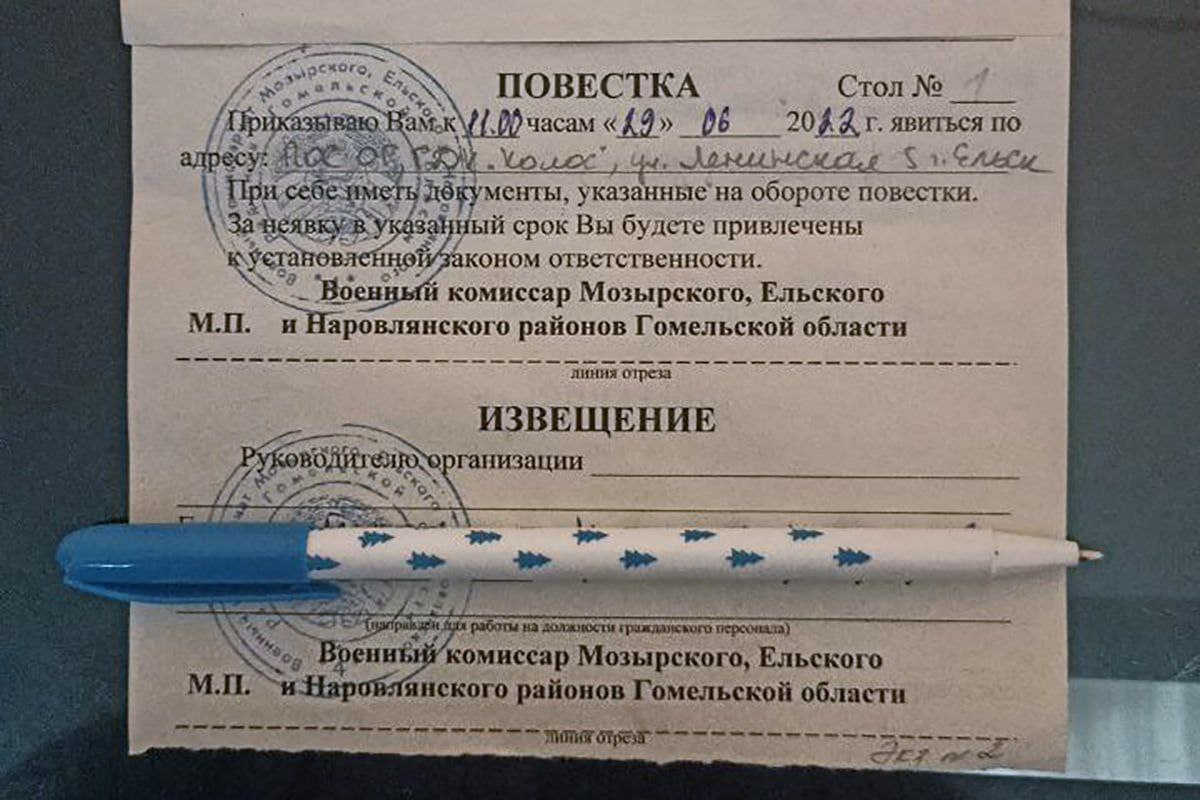 ПОВЕСТКА Стол № 1
Приказываю Вам к 11.00 часам «29» 06 2022 г. явиться по
адресу: "Колос", ул. Ленинская 5 г. Ельск
При себе иметь документы, указанные на обороте повестки.
За неявку в указанный срок Вы будете привлечены
к установленной законом ответственности.
Военный комиссар Мозырского, Ельского
М.П. и Наровлянского районов Гомельской области
линия отреза
ИЗВЕЩЕНИЕ
Руководителю организации
(направлен для работы на должности гражданского персонала)
Военный комиссар Мозырского, Ельского
М.П. и Наровлянского районов Гомельской области
линия отреза